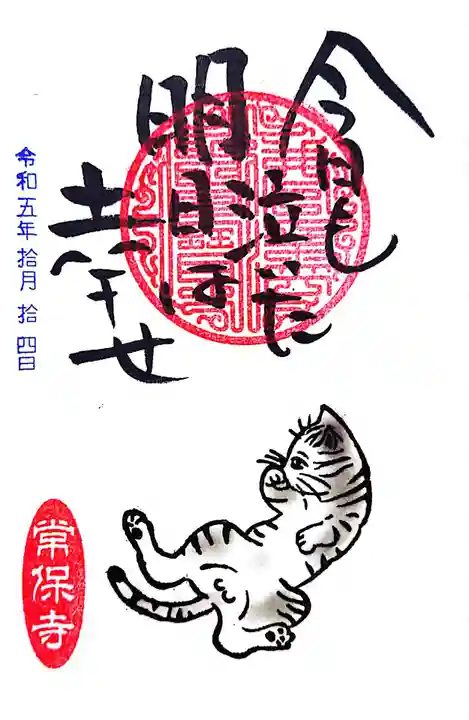 今日も泣いた
明日は
幸せ
令和五年拾月拾四日
常保寺